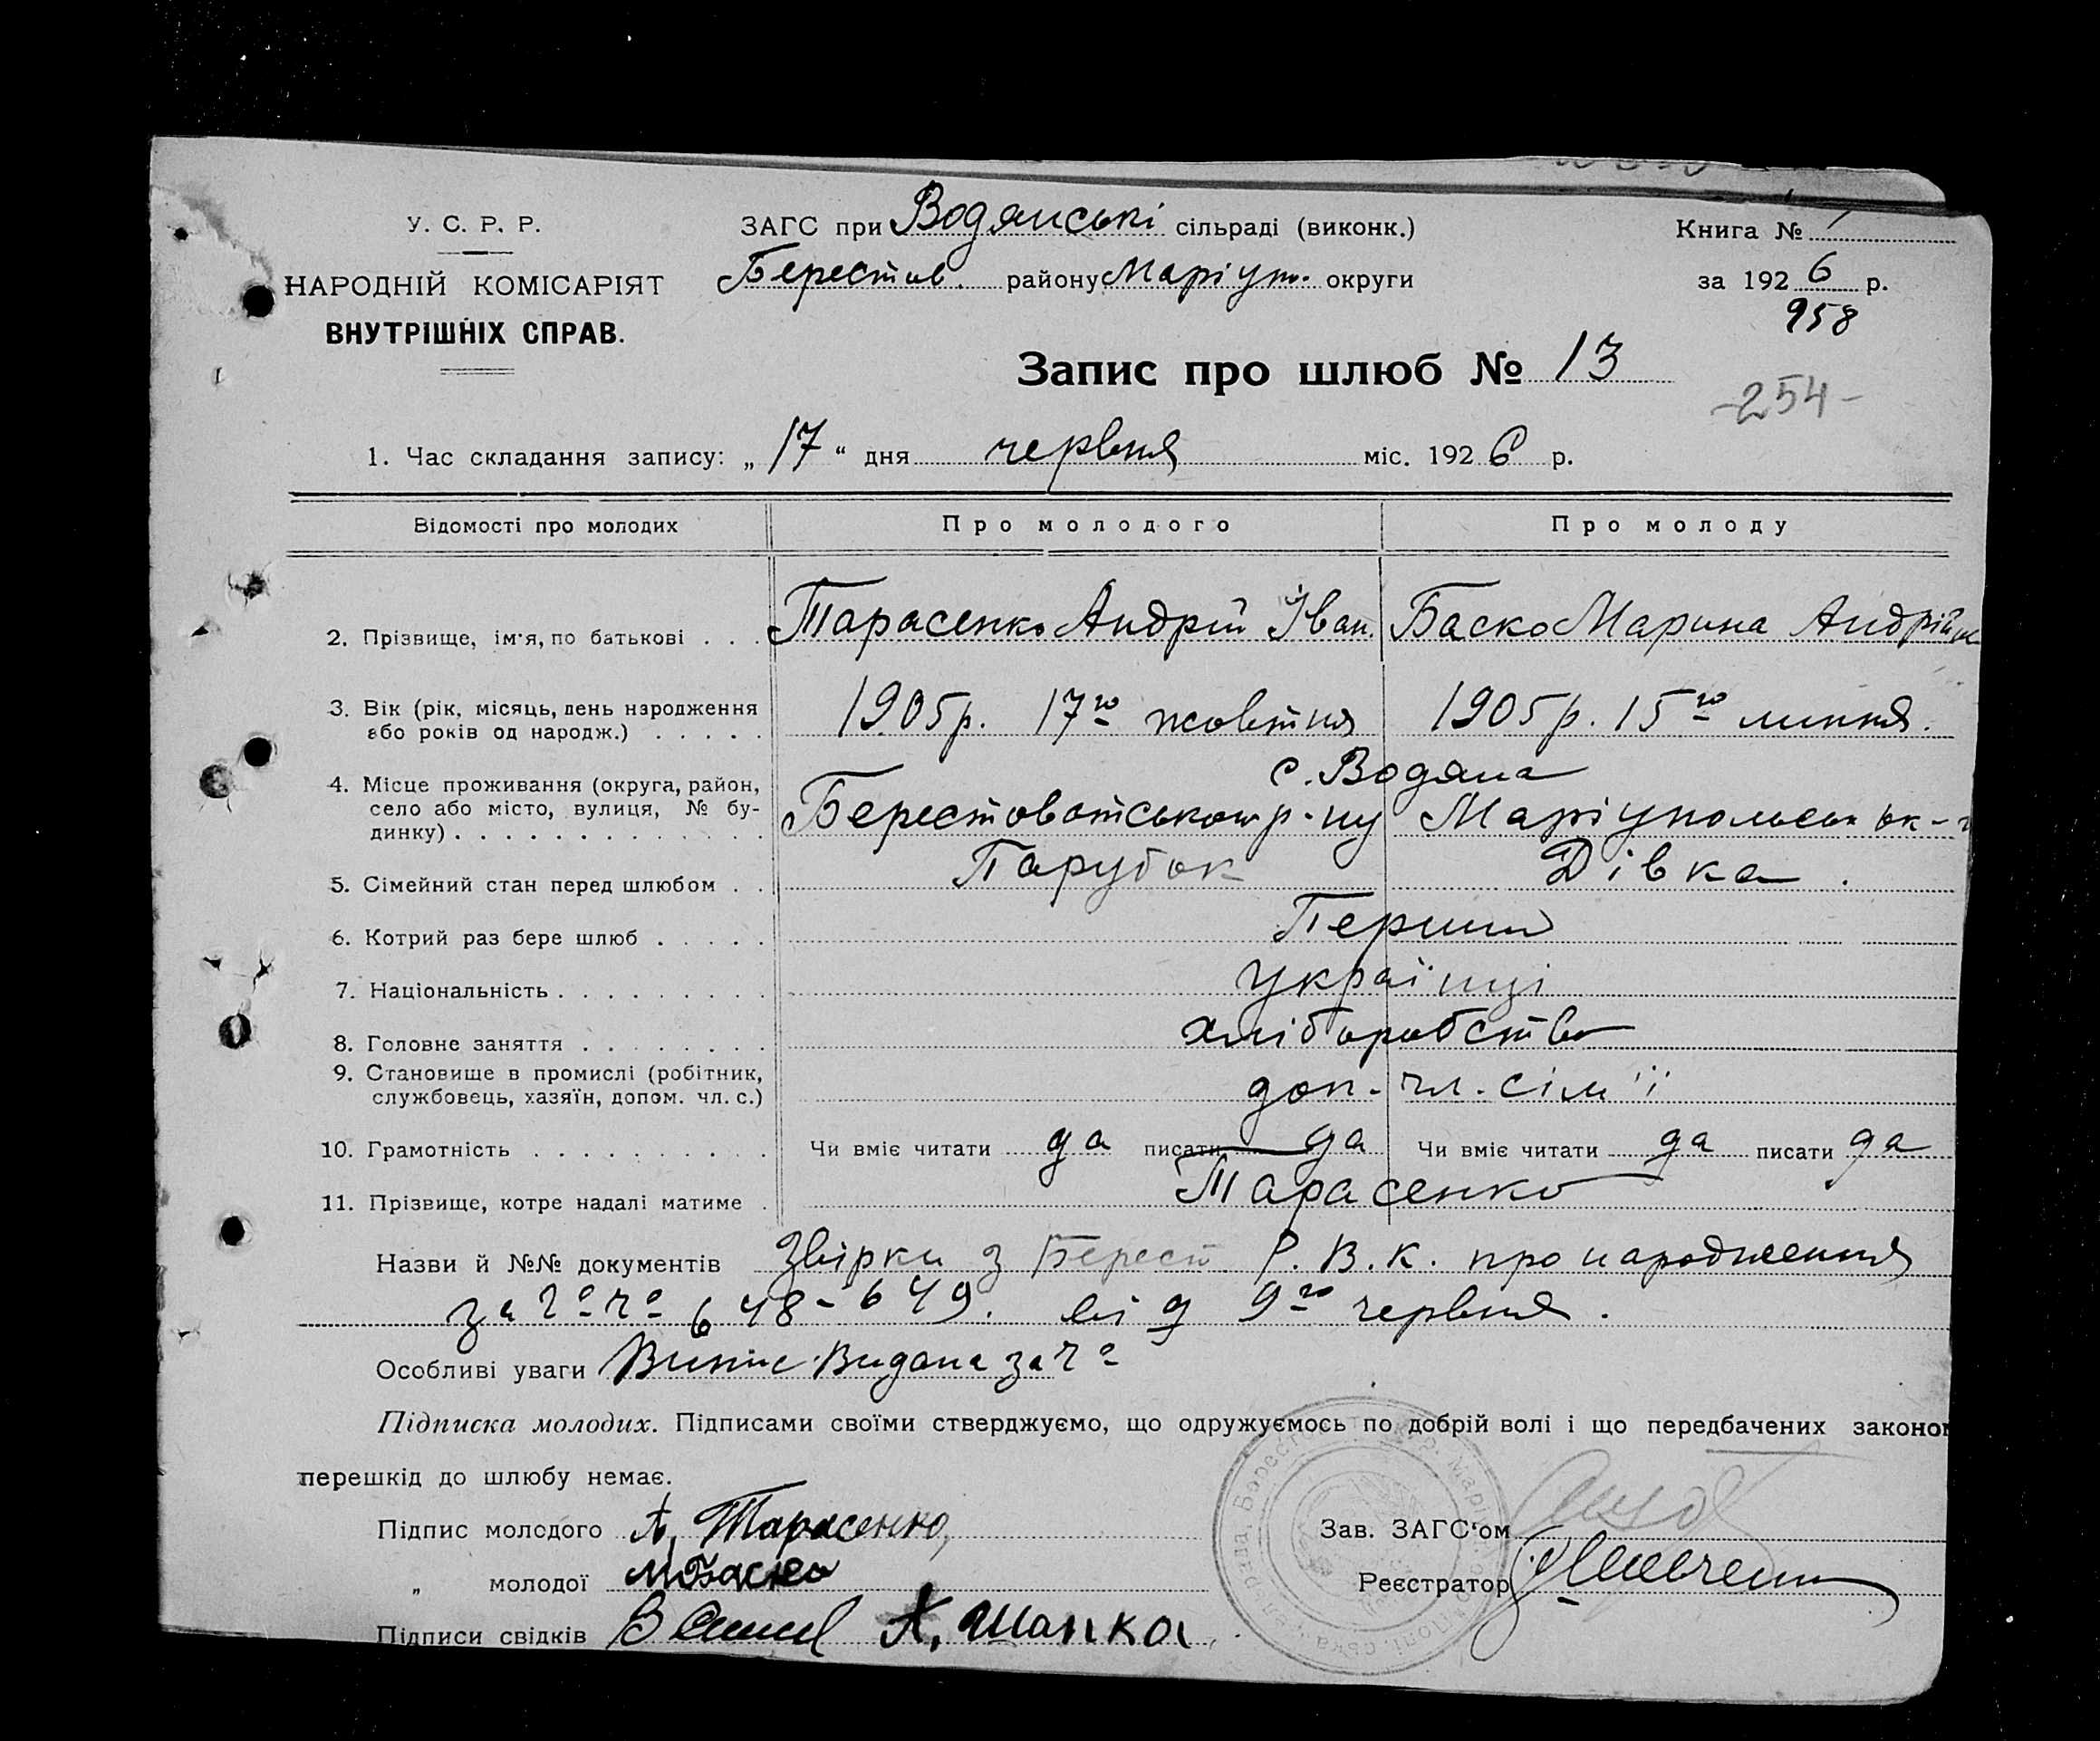 У. С. Р. Р.
НАРОДНІЙ КОМІСАРІЯТ
ВНУТРІШНІХ СПРАВ.
ЗАГС при Водянські сільраді (виконк.)
Берестов. району Маріуп. округи
Книга №
за 1926 р.
958
Запис про шлюб № 13
-254-
1. Час складання запису: „17“ дня червня міс. 1926 р.
Відомості про молодих Про молодого Про молоду
2. Прізвище, ім'я, по батькові . . . Тарасенко Андрій Іван. Баско Марина Андрій
3. Вік (рік, місяць, день народження
або років од народж.) . . . . . 1905р. 17го жовтня 1905р. 15го липня.
с. Водяна
4. Місце проживання (округа, район,
село або місто, вулиця, № бу-
динку) . . . . . . . . . . . . . Берестоватського р-ну Маріупольськ ок-
5. Сімейний стан перед шлюбом . . Парубок Дівка.
6. Котрий раз бере шлюб . . . . . Перший
7. Національність . . . . . . . . . українці
8. Головне заняття . . . . . . . . хліборобство
9. Становище в промислі (робітник,
службовець, хазяїн, допом. чл. с.) доп. чл. сім'ї
10. Грамотність . . . . . . . . . . Чи вміє читати да писати да Чи вміє читати да писати да
11. Прізвище, котре надалі матиме . Тарасенко
Назви й №№ документів Звірки з Берест Р. В. К. про народження
за 648-649. від 9го червня.
Особливі уваги Випис Видана за
Підписка молодих. Підписами своїми стверджуємо, що одружуємось по добрій волі і що передбачених законо
перешкід до шлюбу немає.
Підпис молодого А. Тарасенко,
„ молодої М Баско
Підписи свідків А. Шапка
Зав. ЗАГС'ом
Реєстратор Шевченко